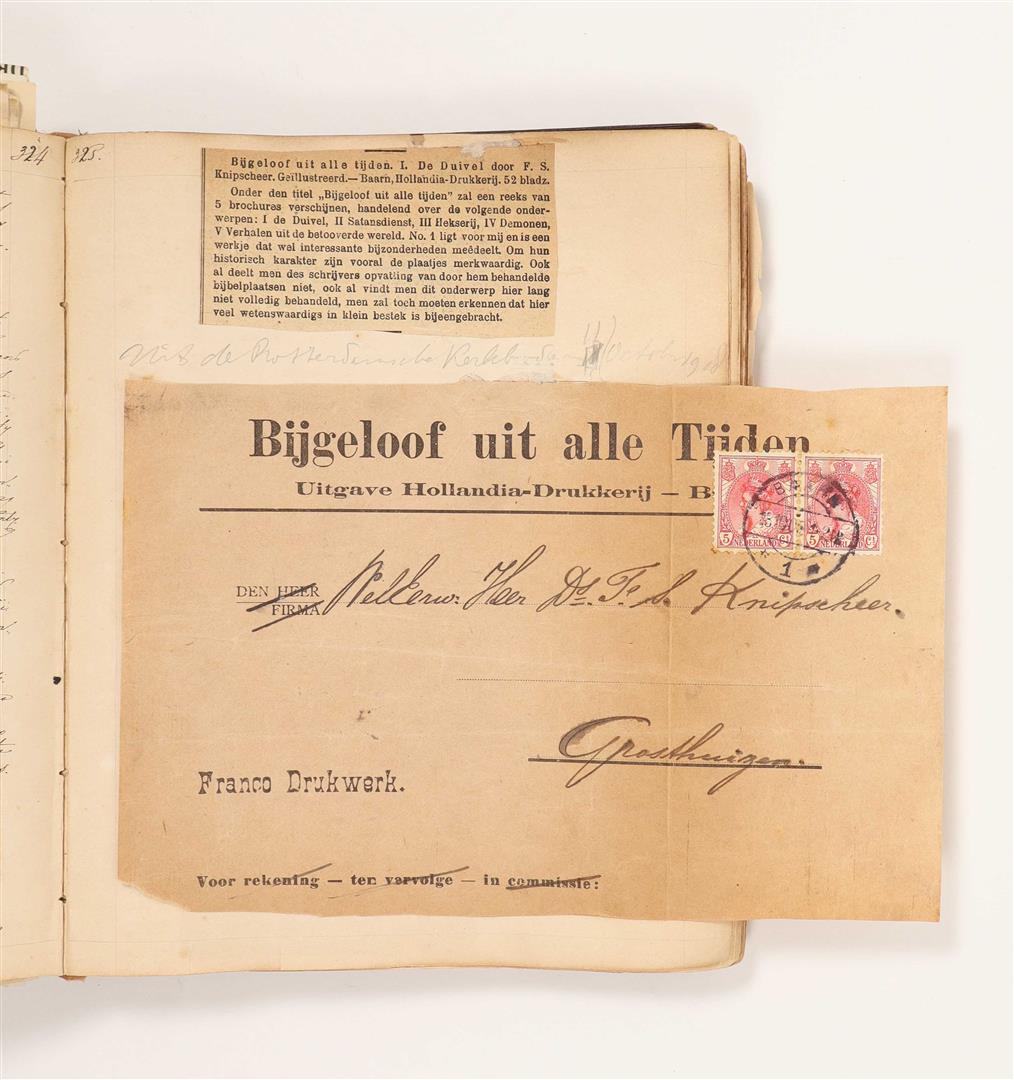 324
325.
Bijgeloof uit alle tijden. I. De Duivel door F. S.
Knipscheer. Geïllustreerd.— Baarn, Hollandia-Drukkerij. 52 bladz.
Onder den titel „Bijgeloof uit alle tijden” zal een reeks van
5 brochures verschijnen, handelend over de volgende onder-
werpen: I de Duivel, II Satansdienst, III Hekserij, IV Demonen,
V Verhalen uit de betooverde wereld. No. 1 ligt voor mij en is een
werkje dat wel interessante bijzonderheden meêdeelt. Om hun
historisch karakter zijn vooral de plaatjes merkwaardig. Ook
al deelt men des schrijvers opvatting van door hem behandelde
bijbelplaatsen niet, ook al vindt men dit onderwerp hier lang
niet volledig behandeld, men zal toch moeten erkennen dat hier
veel wetenswaardigs in klein bestek is bijeengebracht.
Uit de Rotterdamsche October 1908
Bijgeloof uit alle Tijden
Uitgave Hollandia-Drukkerij — B
5 NEDERLAND Ct
5 NEDERLAND Ct
BAARN
1
DEN HEER
FIRMA
WelEerw: Heer Ds. F. S. Knipscheer.
Grosthuizen.
Franco Drukwerk.
Voor rekening — ten vervolge — in commissie: